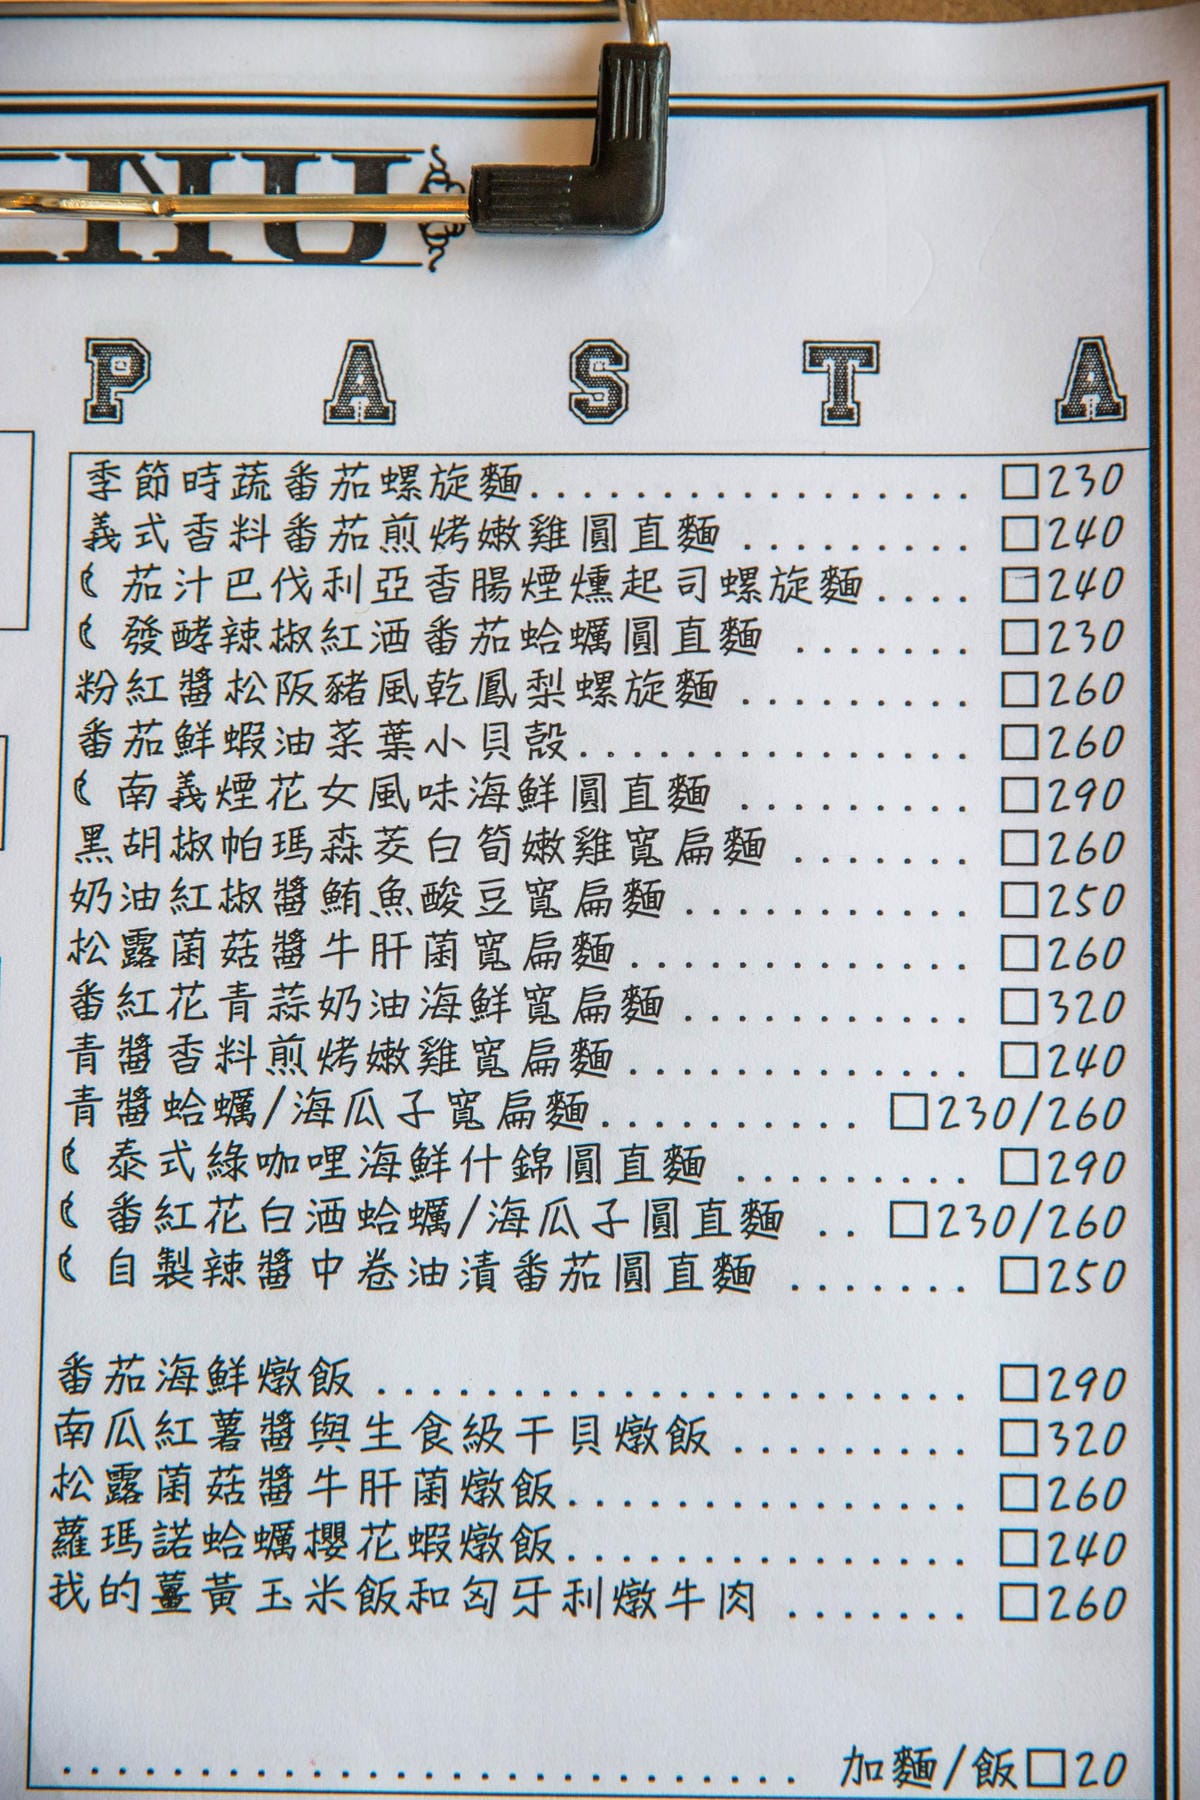 ENU
PASTA
季節時蔬番茄螺旋麵.................. □230
義式香料番茄煎烤嫩雞圓直麵......... □240
茄汁巴伐利亞香腸煙燻起司螺旋麵.... □240
發酵辣椒紅酒番茄蛤蠣圓直麵....... □230
粉紅醬松阪豬風乾鳳梨螺旋麵.......... □260
番茄鮮蝦油菜葉小貝殼................ □260
南義煙花女風味海鮮圓直麵......... □290
黑胡椒帕瑪森茭白筍嫩雞寬扁麵....... □260
奶油紅椒醬鮪魚酸豆寬扁麵........... □250
松露菌菇醬牛肝菌寬扁麵............. □260
番紅花青蒜奶油海鮮寬扁麵........... □320
青醬香料煎烤嫩雞寬扁麵............. □240
青醬蛤蠣/海瓜子寬扁麵.......... □230/260
泰式綠咖哩海鮮什錦圓直麵......... □290
番紅花白酒蛤蠣/海瓜子圓直麵.. □230/260
自製辣醬中卷油漬番茄圓直麵....... □250
番茄海鮮燉飯...................... □290
南瓜紅薯醬與生食級干貝燉飯......... □320
松露菌菇醬牛肝菌燉飯............... □260
蘿瑪諾蛤蠣櫻花蝦燉飯............... □240
我的薑黃玉米飯和匈牙利燉牛肉....... □260
............................ 加麵/飯□20